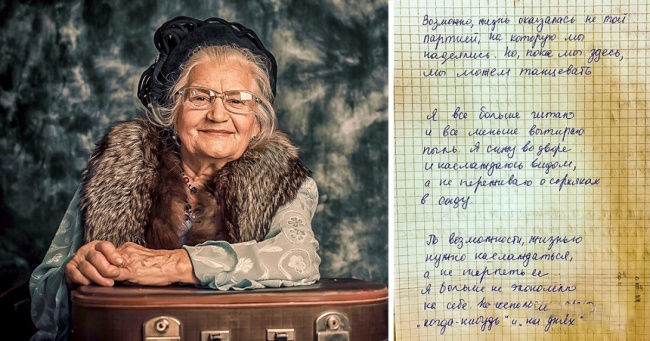 Возможно, жизнь оказалась не той
партией, на которую мы
надеялись. Но, пока мы здесь,
мы можем танцевать
Я все больше читаю
и все меньше вытираю
пыль. Я сижу во дворе
и наслаждаюсь видом,
а не переживаю о сорняках
в саду.
По возможности, жизнью
нужно наслаждаться,
а не терпеть ее
Я больше не экономлю
на себе.
"когда-нибудь" и "на днях"